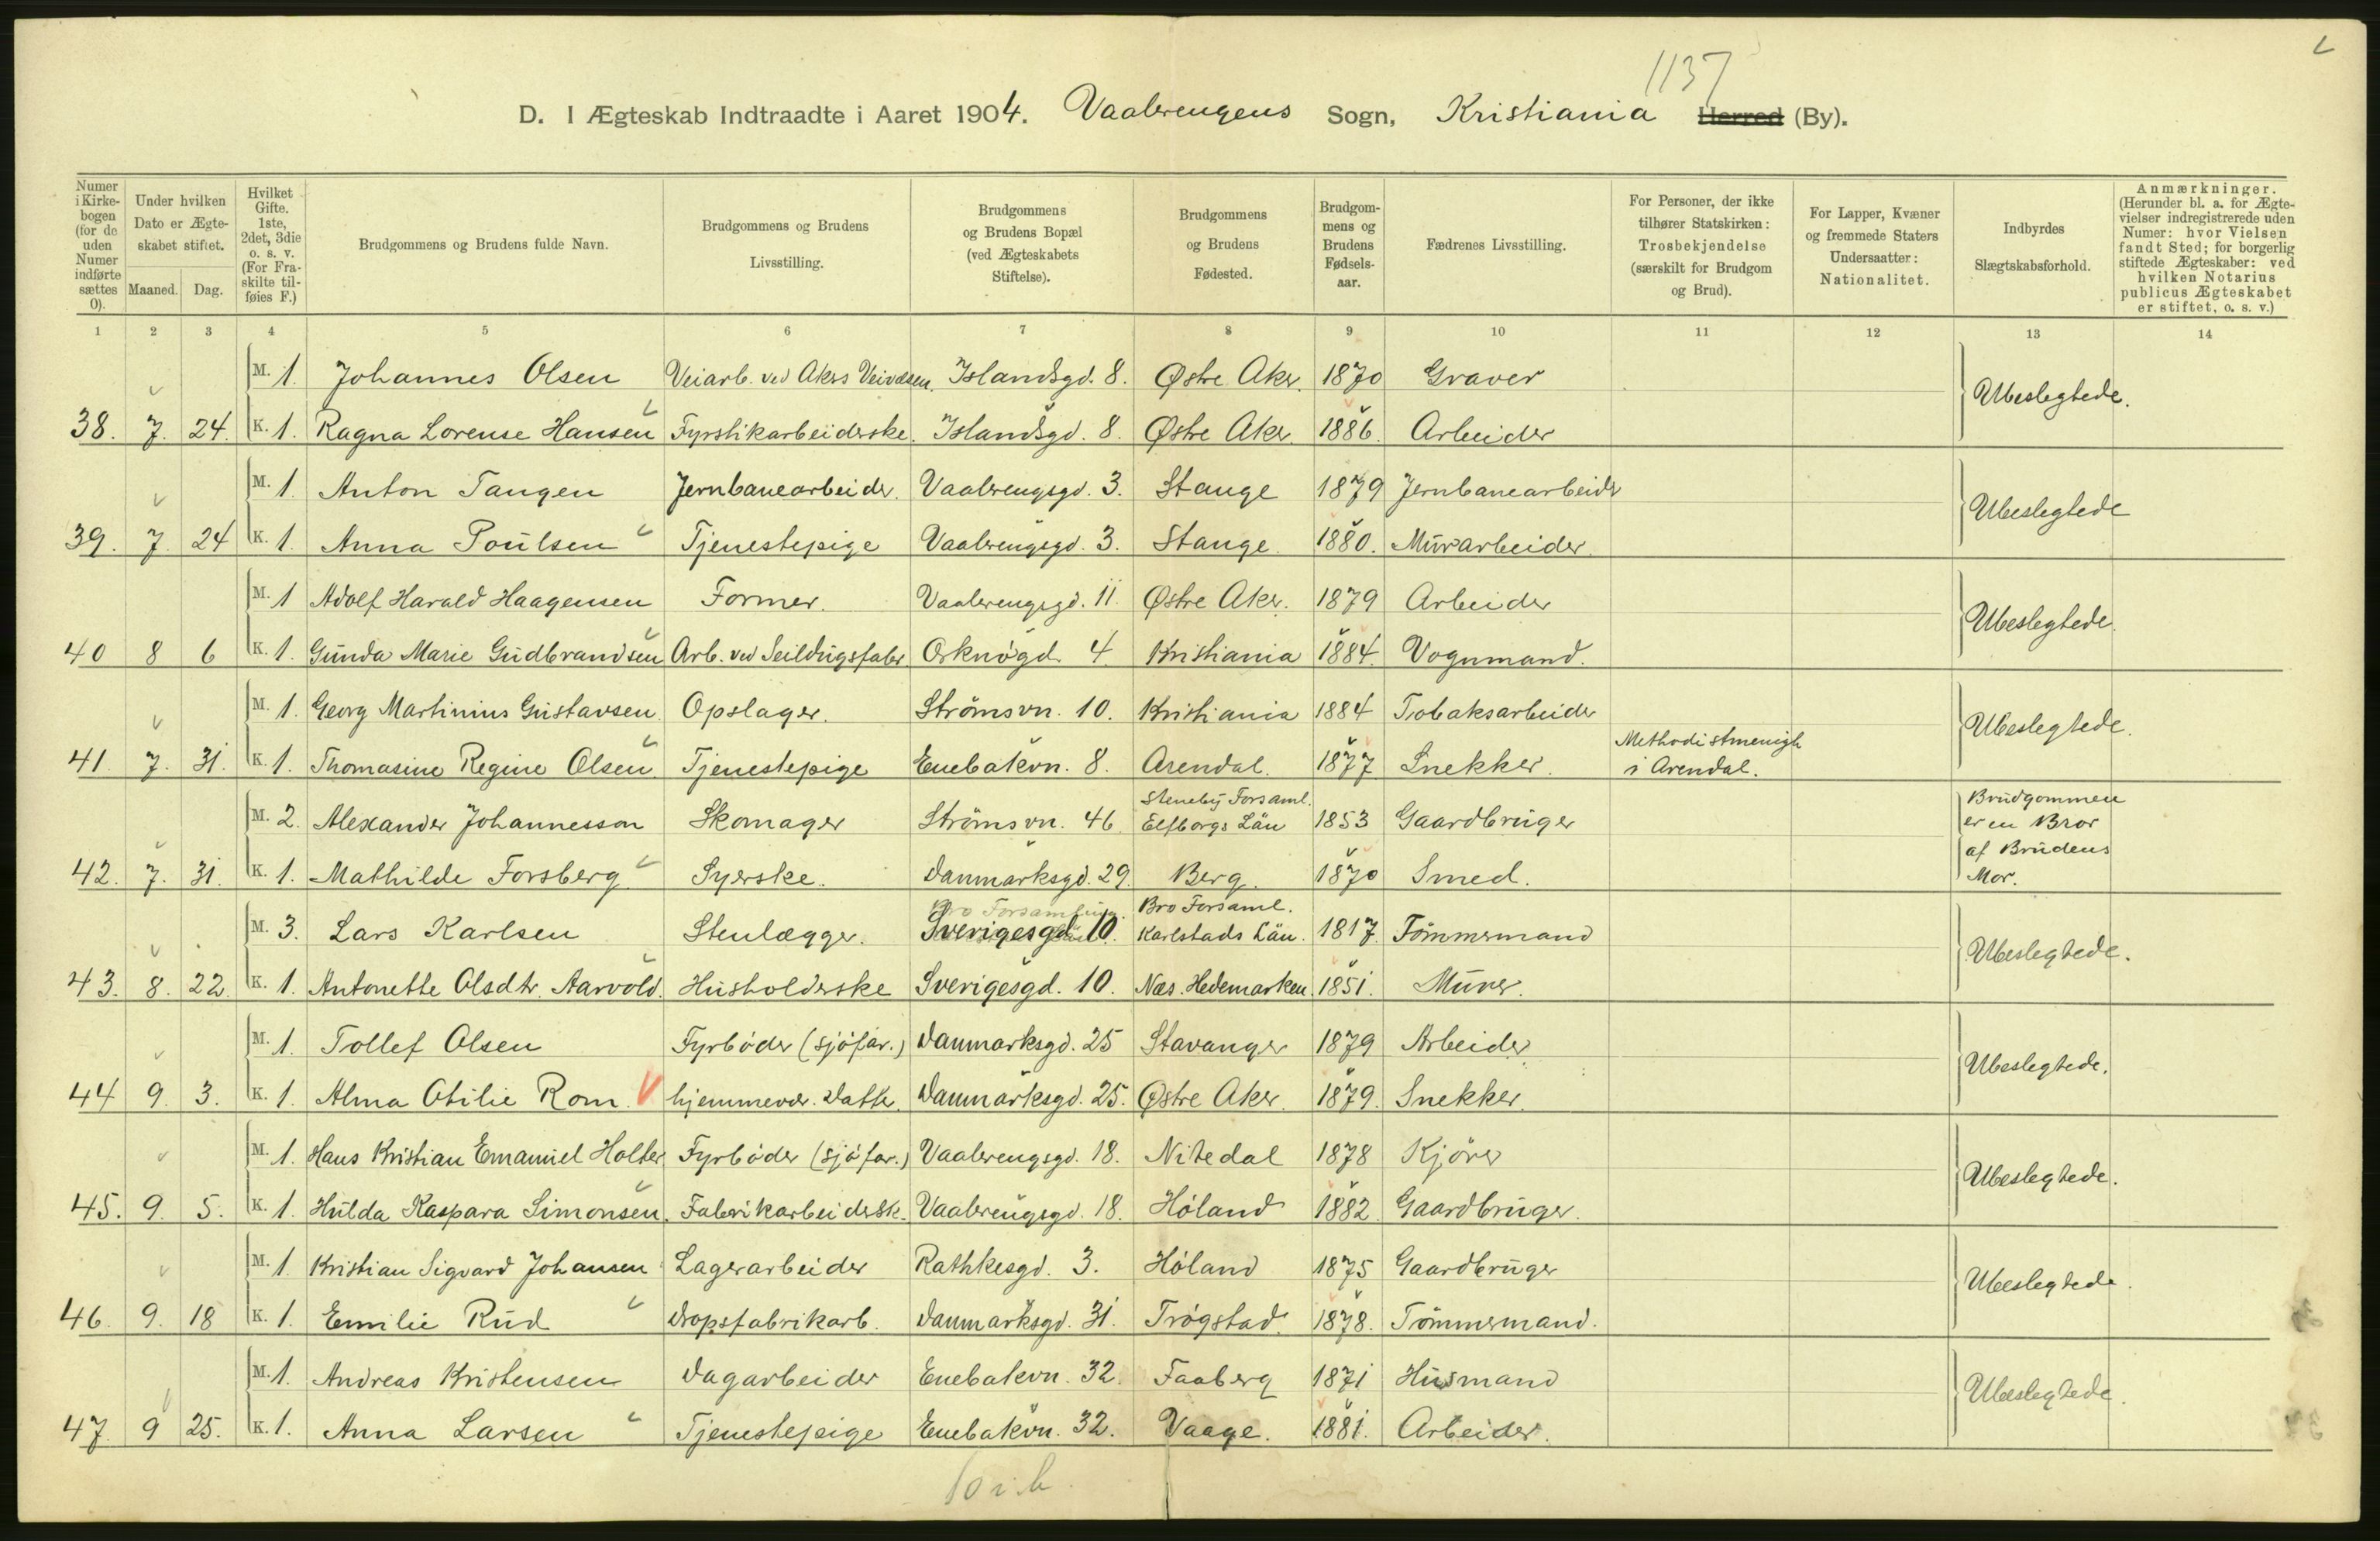 1137
D. I Ægteskab Indtraadte i Aaret 1904. Vaalerengens Sogn, Kristiania Herred (By).
Numer i Kirkebogen (for de uden Numer indførte sættes 0).
Under hvilken Dato er Ægteskabet stiftet.
Maaned. Dag.
Hvilket Gifte. 1ste, 2det, 3die o. s. v. (For Fraskilte tilføies F.)
Brudgommens og Brudens fulde Navn.
Brudgommens og Brudens Livsstilling.
Brudgommens og Brudens Bopæl (ved Ægteskabets Stiftelse).
Brudgommens og Brudens Fødested.
Brudgommens og Brudens Fødselsaar.
Fædrenes Livsstilling.
For Personer, der ikke tilhører Statskirken: Trosbekjendelse (særskilt for Brudgom og Brud).
For Lapper, Kvæner og fremmede Staters Undersaatter: Nationalitet.
Indbyrdes Slægtskabsforhold.
Anmærkninger. (Herunder bl. a. for Ægtevielser indregistrerede uden Numer: hvor Vielsen fandt Sted; for borgerlig stiftede Ægteskaber: ved hvilken Notarius publicus Ægteskabet er stiftet, o. s. v.)
1 2 3 4 5 6 7 8 9 10 11 12 13 14
M. 1. Johannes Olsen Veiarb. ved Akers Veivæsen. Islandsgd. 8. Østre Aker. 1870 Graver Ubeslegtede.
38. 7. 24. K. 1. Ragna Lorense Hansen Fyrstikarbeiderske. Islandsgd. 8. Østre Aker. 1886. Arbeider
M. 1. Anton Tangen Jernbanearbeider. Vaalerengsgd. 3. Stange 1879 Jernbanearbeider Ubeslegtede
39. 7. 24 K. 1. Anna Poulsen Tjenestepige Vaalerengsgd. 3. Stange. 1880. Murarbeider.
M. 1 Adolf Harald Haagensen Former. Vaalerengsgd. 11. Østre Aker. 1879 Arbeider Ubeslegtede.
40 8 6 K. 1. Gunda Marie Gudbrandsen Arb. ved Seildugsfabr. Orknøgd. 4. Kristiania 1884. Vognmand.
M. 1. Georg Martinius Gustavsen. Opslager. Strömsvn. 10. Kristiania 1884 Tobaksarbeider Ubeslegtede.
41. 7. 31. K. 1. Thomasine Regine Olsen Tjenestepige Enebakvn. 8. Arendal. 1877 Snekker. Methodistmenigh. i Arendal.
M. 2. Alexander Johannesson Skomager Strömsvn. 46. Steneby Forsaml. Elfborgs Län 1853 Gaardbruger Brudgommen er en Bror
42. 7. 31. K. 1. Mathilde Forsberg. Syerske. Danmarksgd. 29. Berg. 1870 Smed. af Brudens Mor.
M. 3. Lars Karlsen Stenlægger. Sverigesgd. 10. Bro Forsaml. Karlstads Län. 1817. Tömmermand Ubeslegtede.
43. 8. 22. K. 1. Antonette Olsdtr. Aarvold. Husholderske Sverigesgd. 10. Næs. Hedemarken. 1851. Murer.
M. 1. Tollef Olsen Fyrbøder (sjøfar.) Danmarksgd. 25 Stavanger 1879 Arbeider Ubeslegtede.
44 9. 3. K. 1. Alma Otilie Rom. hjemmevær. Datter. Danmarksgd. 25. Østre Aker. 1879. Snekker.
M. 1. Hans Kristian Emanuel Holter Fyrbøder (sjøfar.) Vaalerengsgd. 18. Nitedal 1878 Kjörer Ubeslegtede.
45. 9. 5. K. 1. Hulda Kaspara Simonsen. Fabrikarbeidersk. Vaalerengsgd. 18. Høland 1882. Gaardbruger.
M. 1. Kristian Sigvard Johansen Lagerarbeider Rathkesgd. 3. Høland 1875 Gaardbruger Ubeslegtede.
46. 9. 18 K. 1. Emilie Rud Dropsfabrikarb. Danmarksgd. 31. Trøgstad. 1878. Tömmermand.
M. 1. Andreas Kristensen Dagarbeider Enebakvn. 32. Faaberg 1871 Husmand Ubeslegtede.
47. 9 25. K. 1. Anna Larsen Tjenestepige Enebakvn. 32. Vaage. 1881. Arbeider.